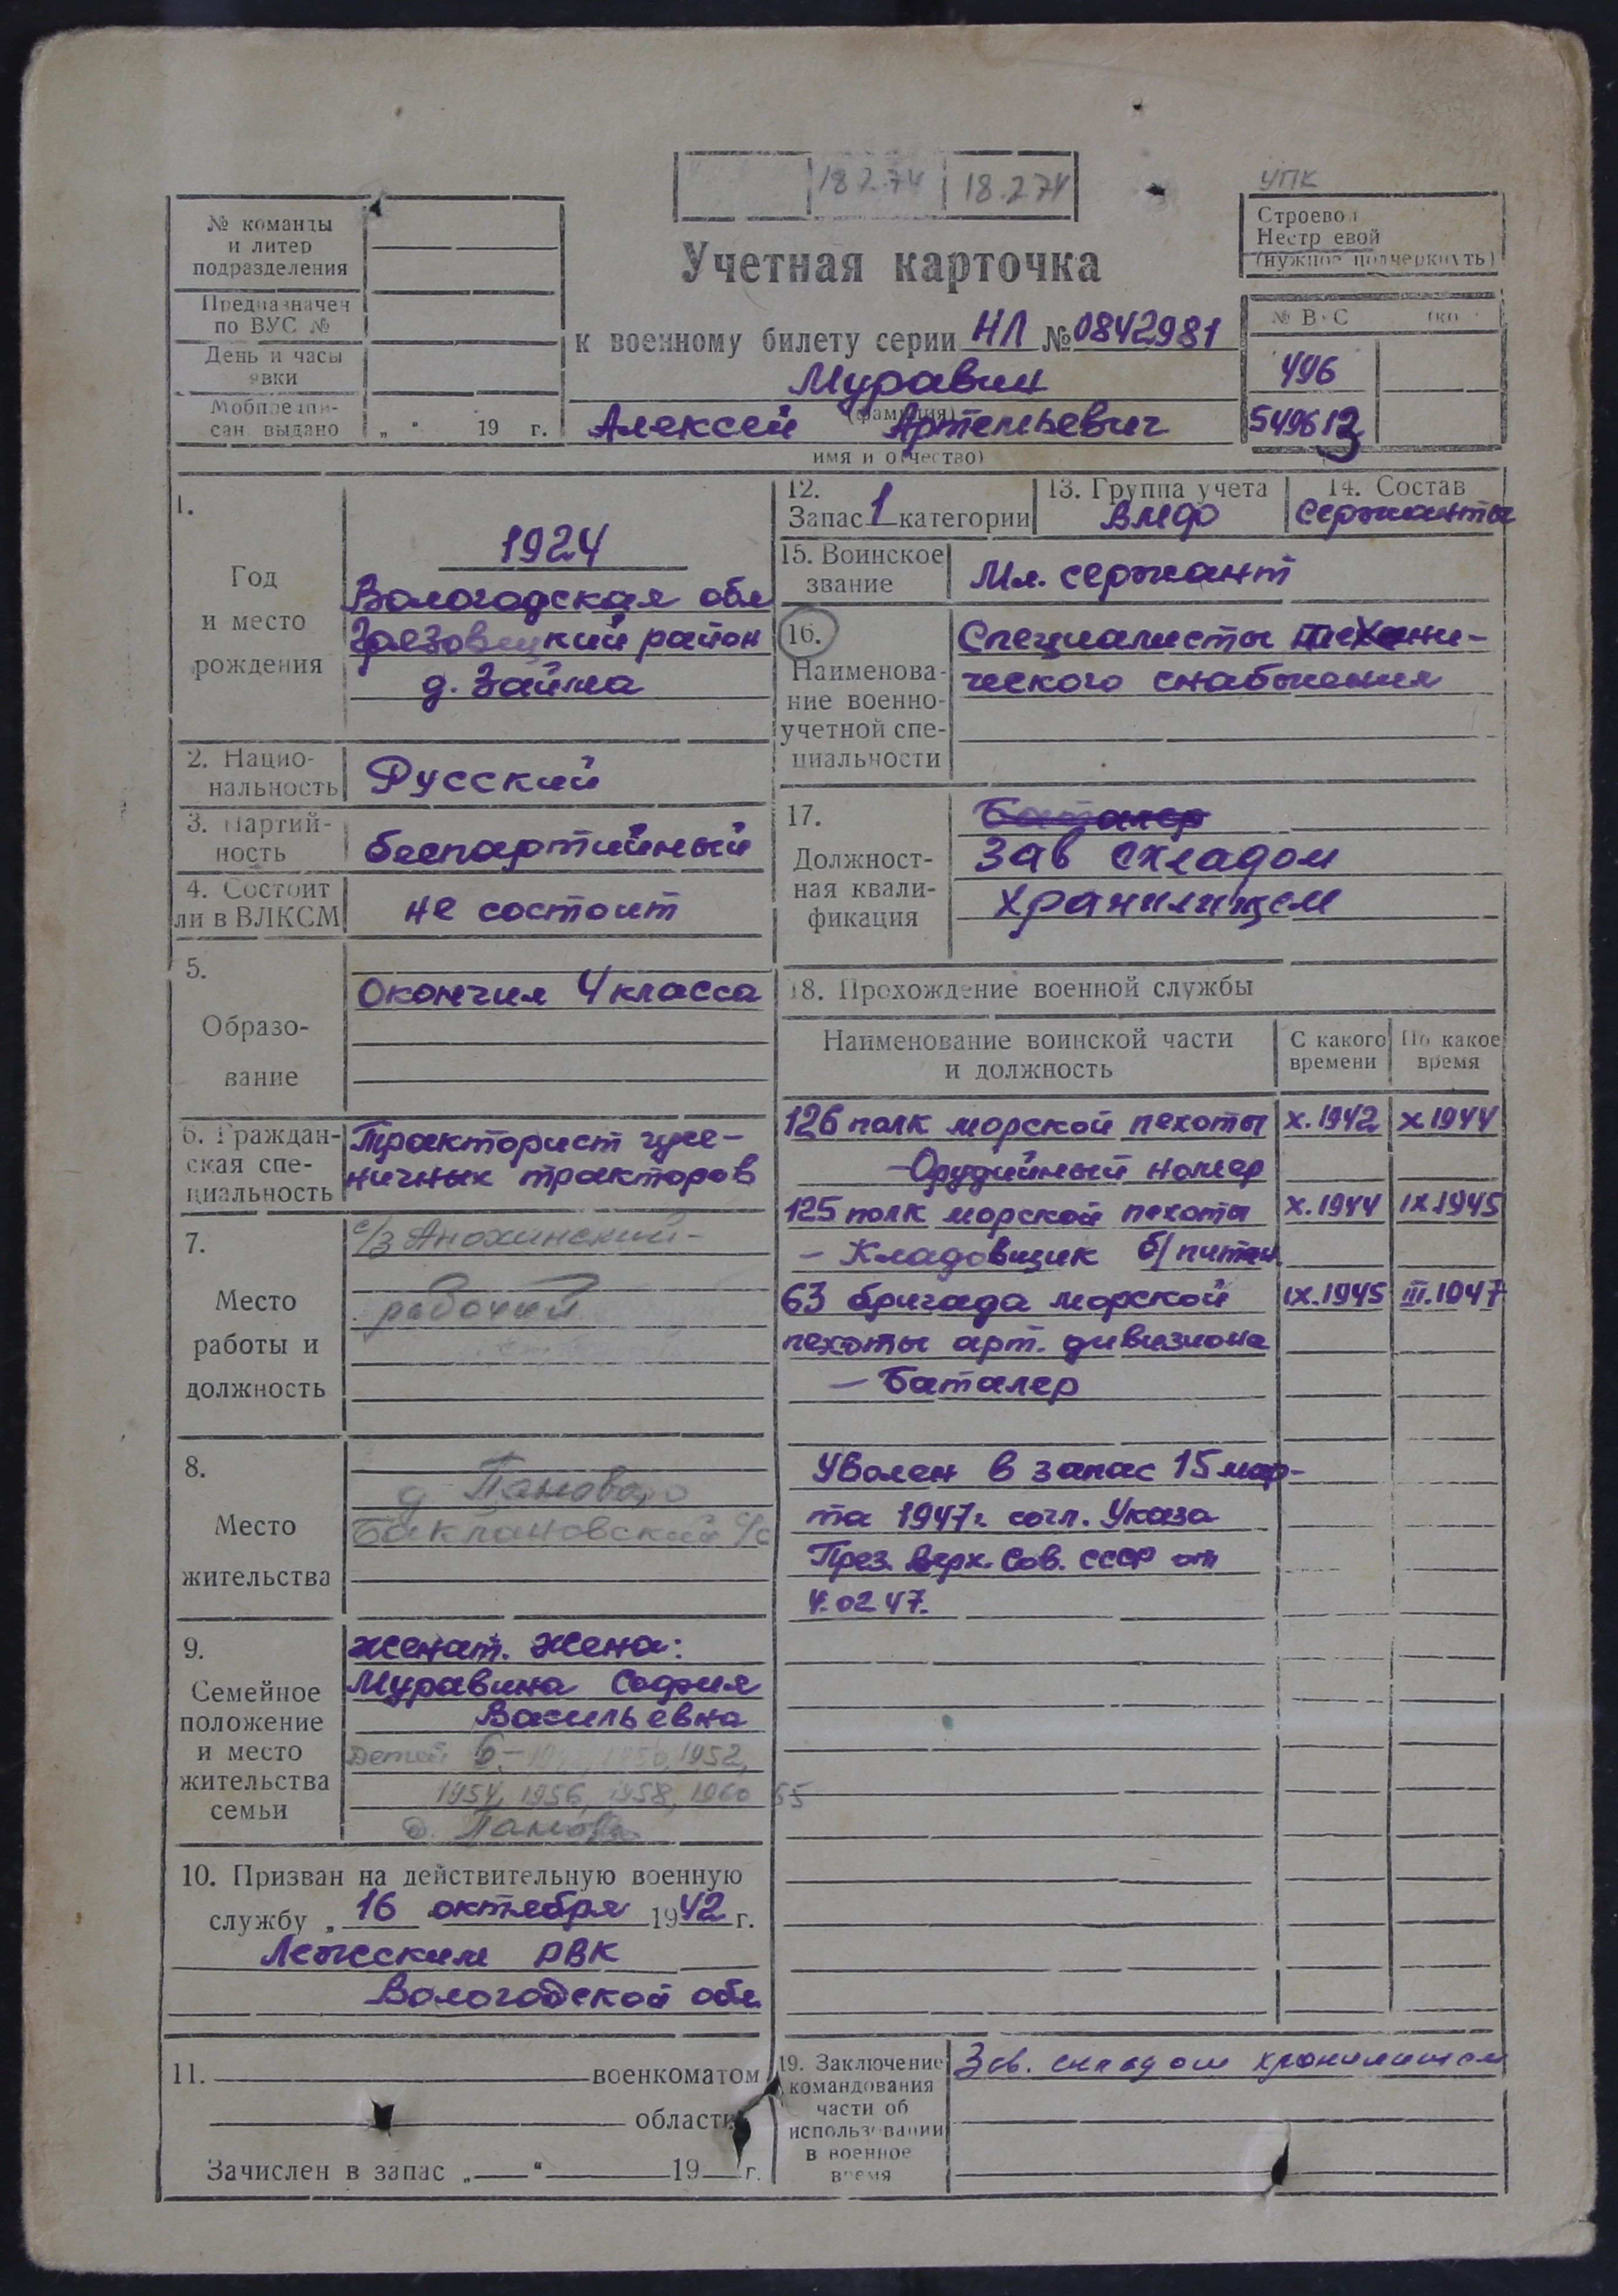 18.2.74 18.2.74
УПК
№ команды
и литер
подразделения
Предназначен
по ВУС №
День и часы
явки
Мобпредпи-
сан. выдано „ “ 19 г.
Строевой
Нестроевой
(нужное подчеркнуть)
Учетная карточка
к военному билету серии НЛ № 0842981
Муравин
(фамилия)
Алексей Артемьевич
имя и отчество)
№ ВУС
496
549613
1.
Год
и место
рождения
1924
Вологодская обл
Грязовецкий район
д. Займа
2. Нацио-
нальность
Русский
3. Партий-
ность
беспартийный
4. Состоит
ли в ВЛКСМ
не состоит
5.
Образо-
вание
Окончил 4 класса
6. Граждан-
ская спе-
циальность
Тракторист гусе-
ничных тракторов
7.
Место
работы и
должность
с/з Анохинский-
рабочий
8.
Место
жительства
д Паново
Баклановский с/с
9.
Семейное
положение
и место
жительства
семьи
Женат. Жена:
Муравина София
Васильевна
Детей 6- 1952,
1954, 1956, 1958, 1960 65
д. Паново
10. Призван на действительную военную
службу „ 16 октября 1942 г.
Лежским РВК
Вологодской обл
11. военкоматом
области
Зачислен в запас „ “ 19 г.
12.
Запас 1 категории
13. Группа учета
ВМФ
14. Состав
Сержанты
15. Воинское
звание
Мл. сержант
16.
Наименова-
ние военно-
учетной спе-
циальности
Специалисты технического
ческого снабжения
17.
Должност-
ная квали-
фикация
Баталер
Зав складом
хранилищем
18. Прохождение военной службы
Наименование воинской части
и должность
С какого
времени
По какое
время
126 полк морской пехоты X.1942 X.1944
-Орудийный номер
125 полк морской пехоты X.1944 IX.1945
- Кладовщик б/питан
63 бригада морской IX.1945 III.1947
пехоты арт. дивизиона
- Баталер
Уволен в запас 15 мар-
та 1947г. согл. Указа
През. Верх. Сов. СССР от
4.02 47.
19. Заключение
командования
части об
использовании
в военное
время
Зав. складом хранилищем